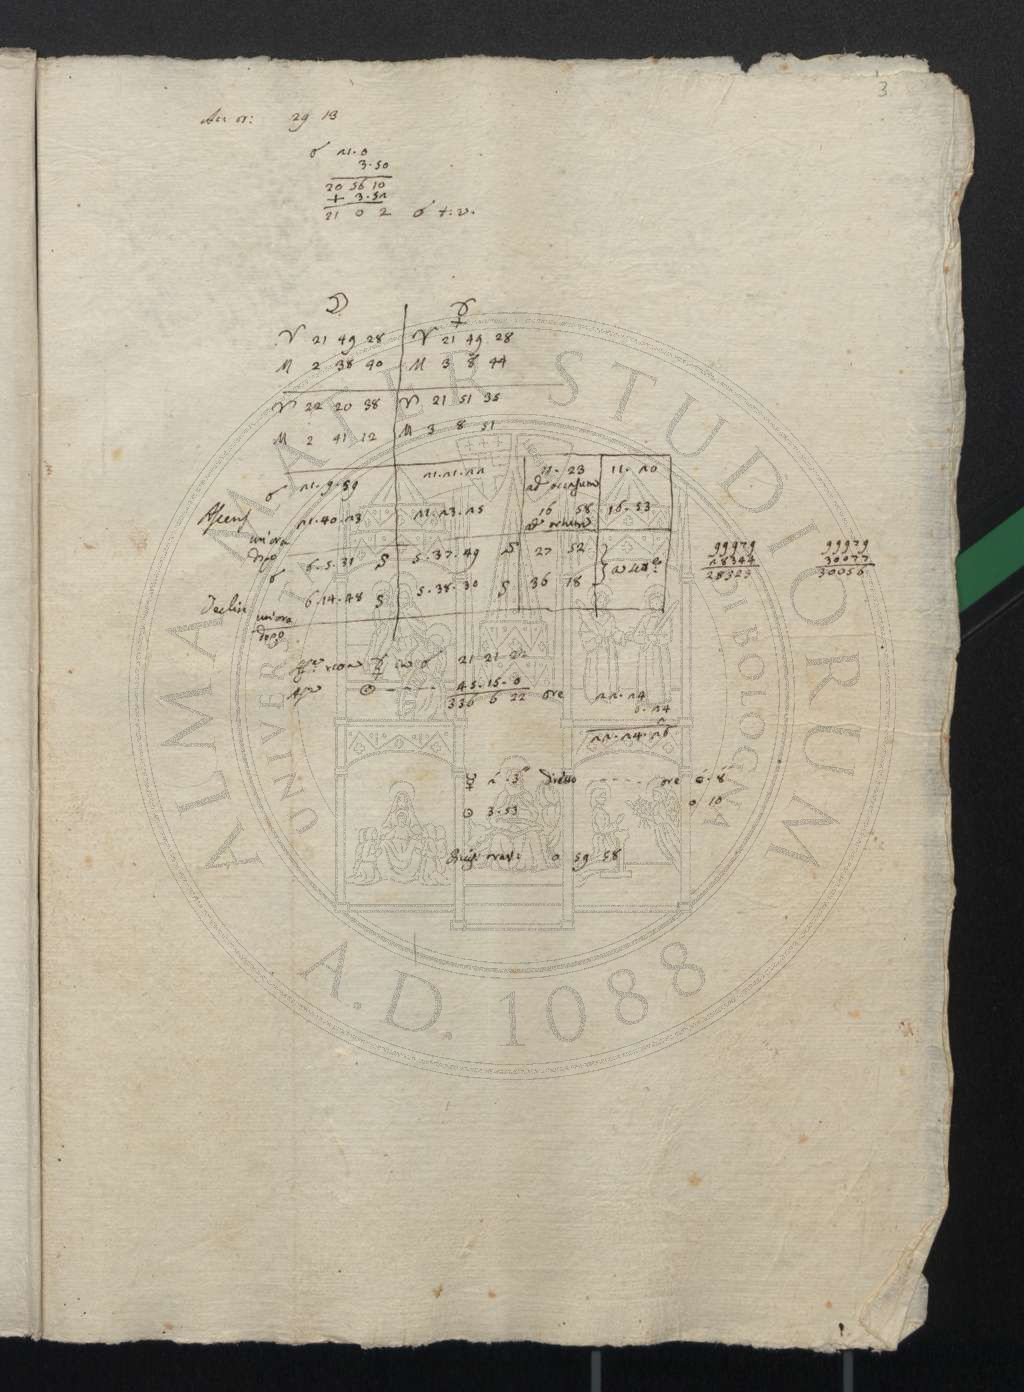 3
29 13
☌ 11.0
3.50
20 56 10
+ 3.52
21 0 2 ☌ t: v.
☽ ☿
♈ 21 49 28 ♈ 21 49 28
M 2 38 40 M 3 8 44
♈ 22 20 38 ♈ 21 51 35
M 2 41 12 M 3 8 51
☌ 11.9.59 11.11.11 11.23 11.10
ad occasum
Ascens 11.40.13 11.13.15 16 58 16.53
un'ora dopo
ad ortum
☌ 6.5.31 S 5.37.49 S 27 52
Declin 6.14.48 S 5.38.30 S 36 18
un'ora dopo
99979 99979
28344 30077
28323 30056
☿ ☌ 21 21 22
☉ - - - - 45.15.0
336 6 22 ore 22.24
0.24
22.24.26
☿ 1.3 diretto - - - - ore 0.8
☉ 3.53 0 10
0 59 58
ALMA MATER STUDIORUM
UNIVERSITÀ DI BOLOGNA
A.D. 1088